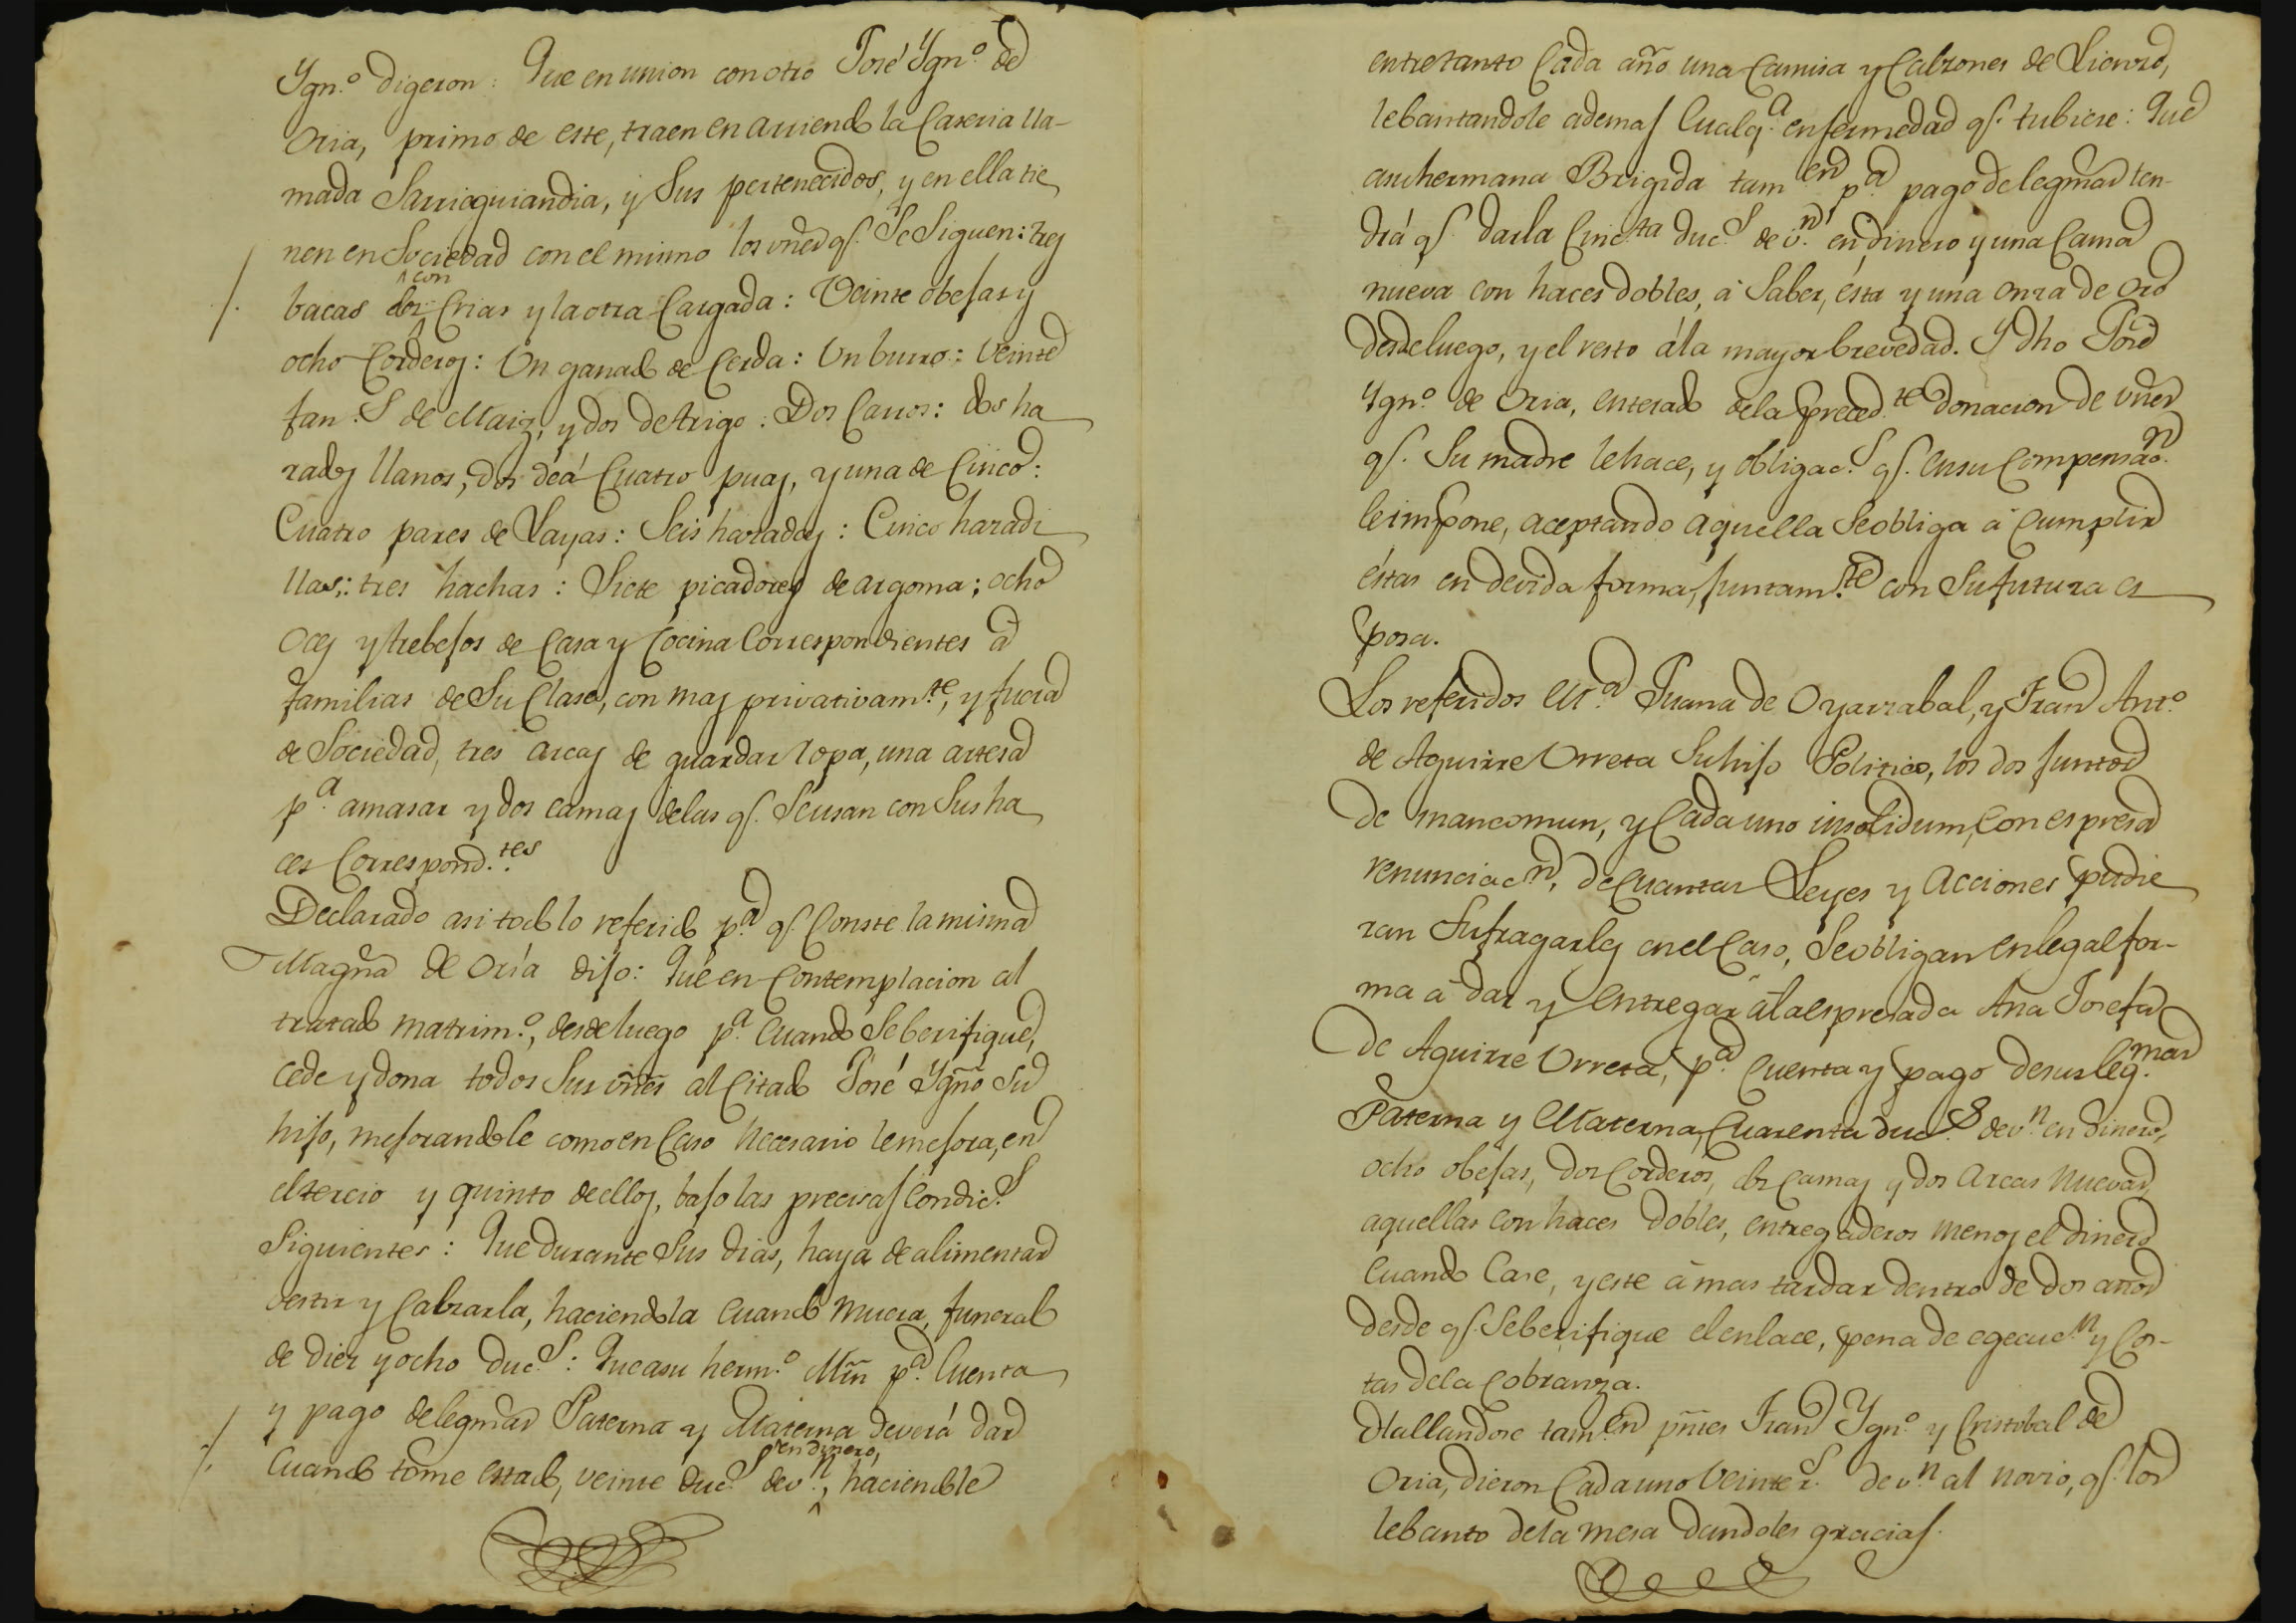 Ygn.º digeron: Que en union con otro José Ygn.º de
Oria, primo de este, traen en arriendo la Caseria lla-
mada Sarrieguiandia, y Sus pertenecidos, y en ella tie
nen en Sociedad con el mismo los vñes q.e Se Siguen: tres
bacas dos con Crias y la otra Cargada: Veinte obejas y
ocho Corderos: Un ganado de Cerda: Un burro: Veinte
fan.s de Maiz, y dos de trigo: Dos Carros: dos ha
rados llanos, dos de á Cuatro puas, y una de Cinco:
Cuatro pares de Layas: Seis haradas: Cinco haradi
llas: tres hachas: Siete picadores de argoma: ocho
oces y trebejos de Casa y Cocina Correspondientes á
familias de Su Clase, con mas privativam.te, y fuera
de Sociedad, tres arcas de guardar ropa, una artesa
p.a amasar y dos camas de las q.e Se usan con Sus ha
ces Correspond.tes
Declarado asi todo lo referido p.a q.e Conste la misma
Magña de Oria dijo: Que en Contemplacion al
tratado matrim.º, desde luego p.a Cuando Se berifique,
cede y dona todos Sus vñes al Citado José Ygnº Su
hijo, mejorandole como en Caso Necesario le mejora, en
el tercio y quinto de ellos, bajo las precisas Condic.s
Siguientes: Que durante Sus dias, haya de alimentar
vestir y Calzarla, haciendola Cuando Muera, funeral
de diez y ocho Duc.s: Que a su herm.º Mrñ p.a Cuenta
y pago de legmas Paterna y Materna deverá dar
Cuando tome estado, veinte duc.s de v.n en dinero, haciendole
entretanto Cada año una Camisa y Calzones de Lienzo,
lebantandole ademas Cualq.a enfermedad q.e tubiere: Que
a su hermana Brigida tam.en p.a pago de legmas ten-
drá q.e darla Cinc.ta duc.s de v.n en dinero y una Cama
nueva con haces dobles, á Saber, ésta y una onza de oro
desde luego, y el resto á la mayor brevedad. Y dho José
Ygn.º de Oria, enterado de la preced.te donacion de vñes
q.e Su madre le hace, y obligac.s q.e en su Compensaón
le impone, aceptando aquella Se obliga á Cumplir
éstas en devida forma, juntam.te con Su futura es
posa.
Los referidos M.a Juana de Oyarzabal, y Fran Ant.º
de Aguirre Urreta Su hijo Politico, los dos juntos
de mancomun, y Cada uno insolidum, con espresa
renunciac.n, de Cuantas Leyes y Acciones pudie
ran Sufragarles en el Caso, Se obligan en legal for-
ma á dar y entregar á la espresada Ana Josefa
de Aguirre Urreta, p.a Cuenta y pago de sus leg.mas
Paterna y Materna, Cuarenta duc.s de v.n en dinero,
ocho obejas, dos Corderos, dos Camas y dos Arcas Nuevas
aquellas con haces dobles, entregaderos Menos el dinero
Cuando Case, y este á mas tardar dentro de dos años
desde q.e Se berifique el enlace, pena de egecuc.n y Cos-
tas de la Cobranza.
Hallandose tam.en pñtes Fran Ygn.º y Cristobal de
Oria, dieron Cada uno Veinte r.s de v.n al novio, q.e los
lebanto de la mesa dandoles gracias.